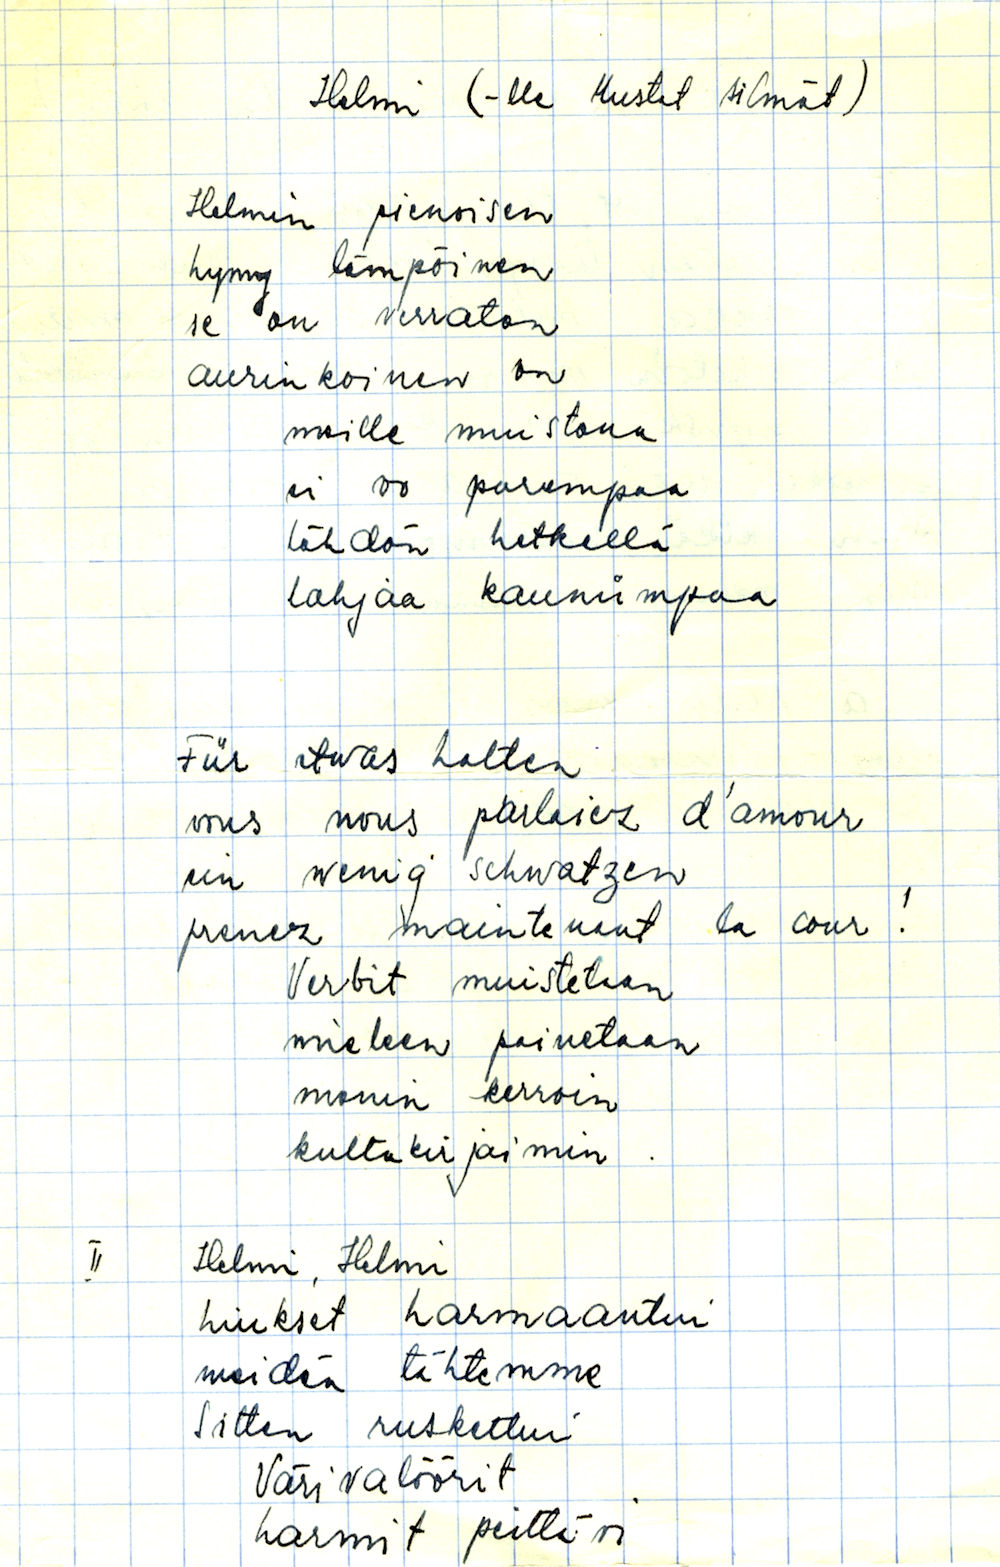 Helmi (-lle Mustat silmät)
Helmin pienoisen
hymy lämpöinen
se on verraton
aurinkoinen on
meille muistona
ei oo parempaa
lähdön hetkellä
lahjaa kauniimpaa
Für etwas halten
vous nous parlaiez d'amour
ein wenig schwatzen
prenez maintenant la cour!
Verbit muistetaan
mieleen painetaan
monin kerroin
kultakirjaimin.
II Helmi, Helmi
hiukset harmaantui
meidän tähtemme
Sittenruskettui
Värivalöörit
harmit peitti